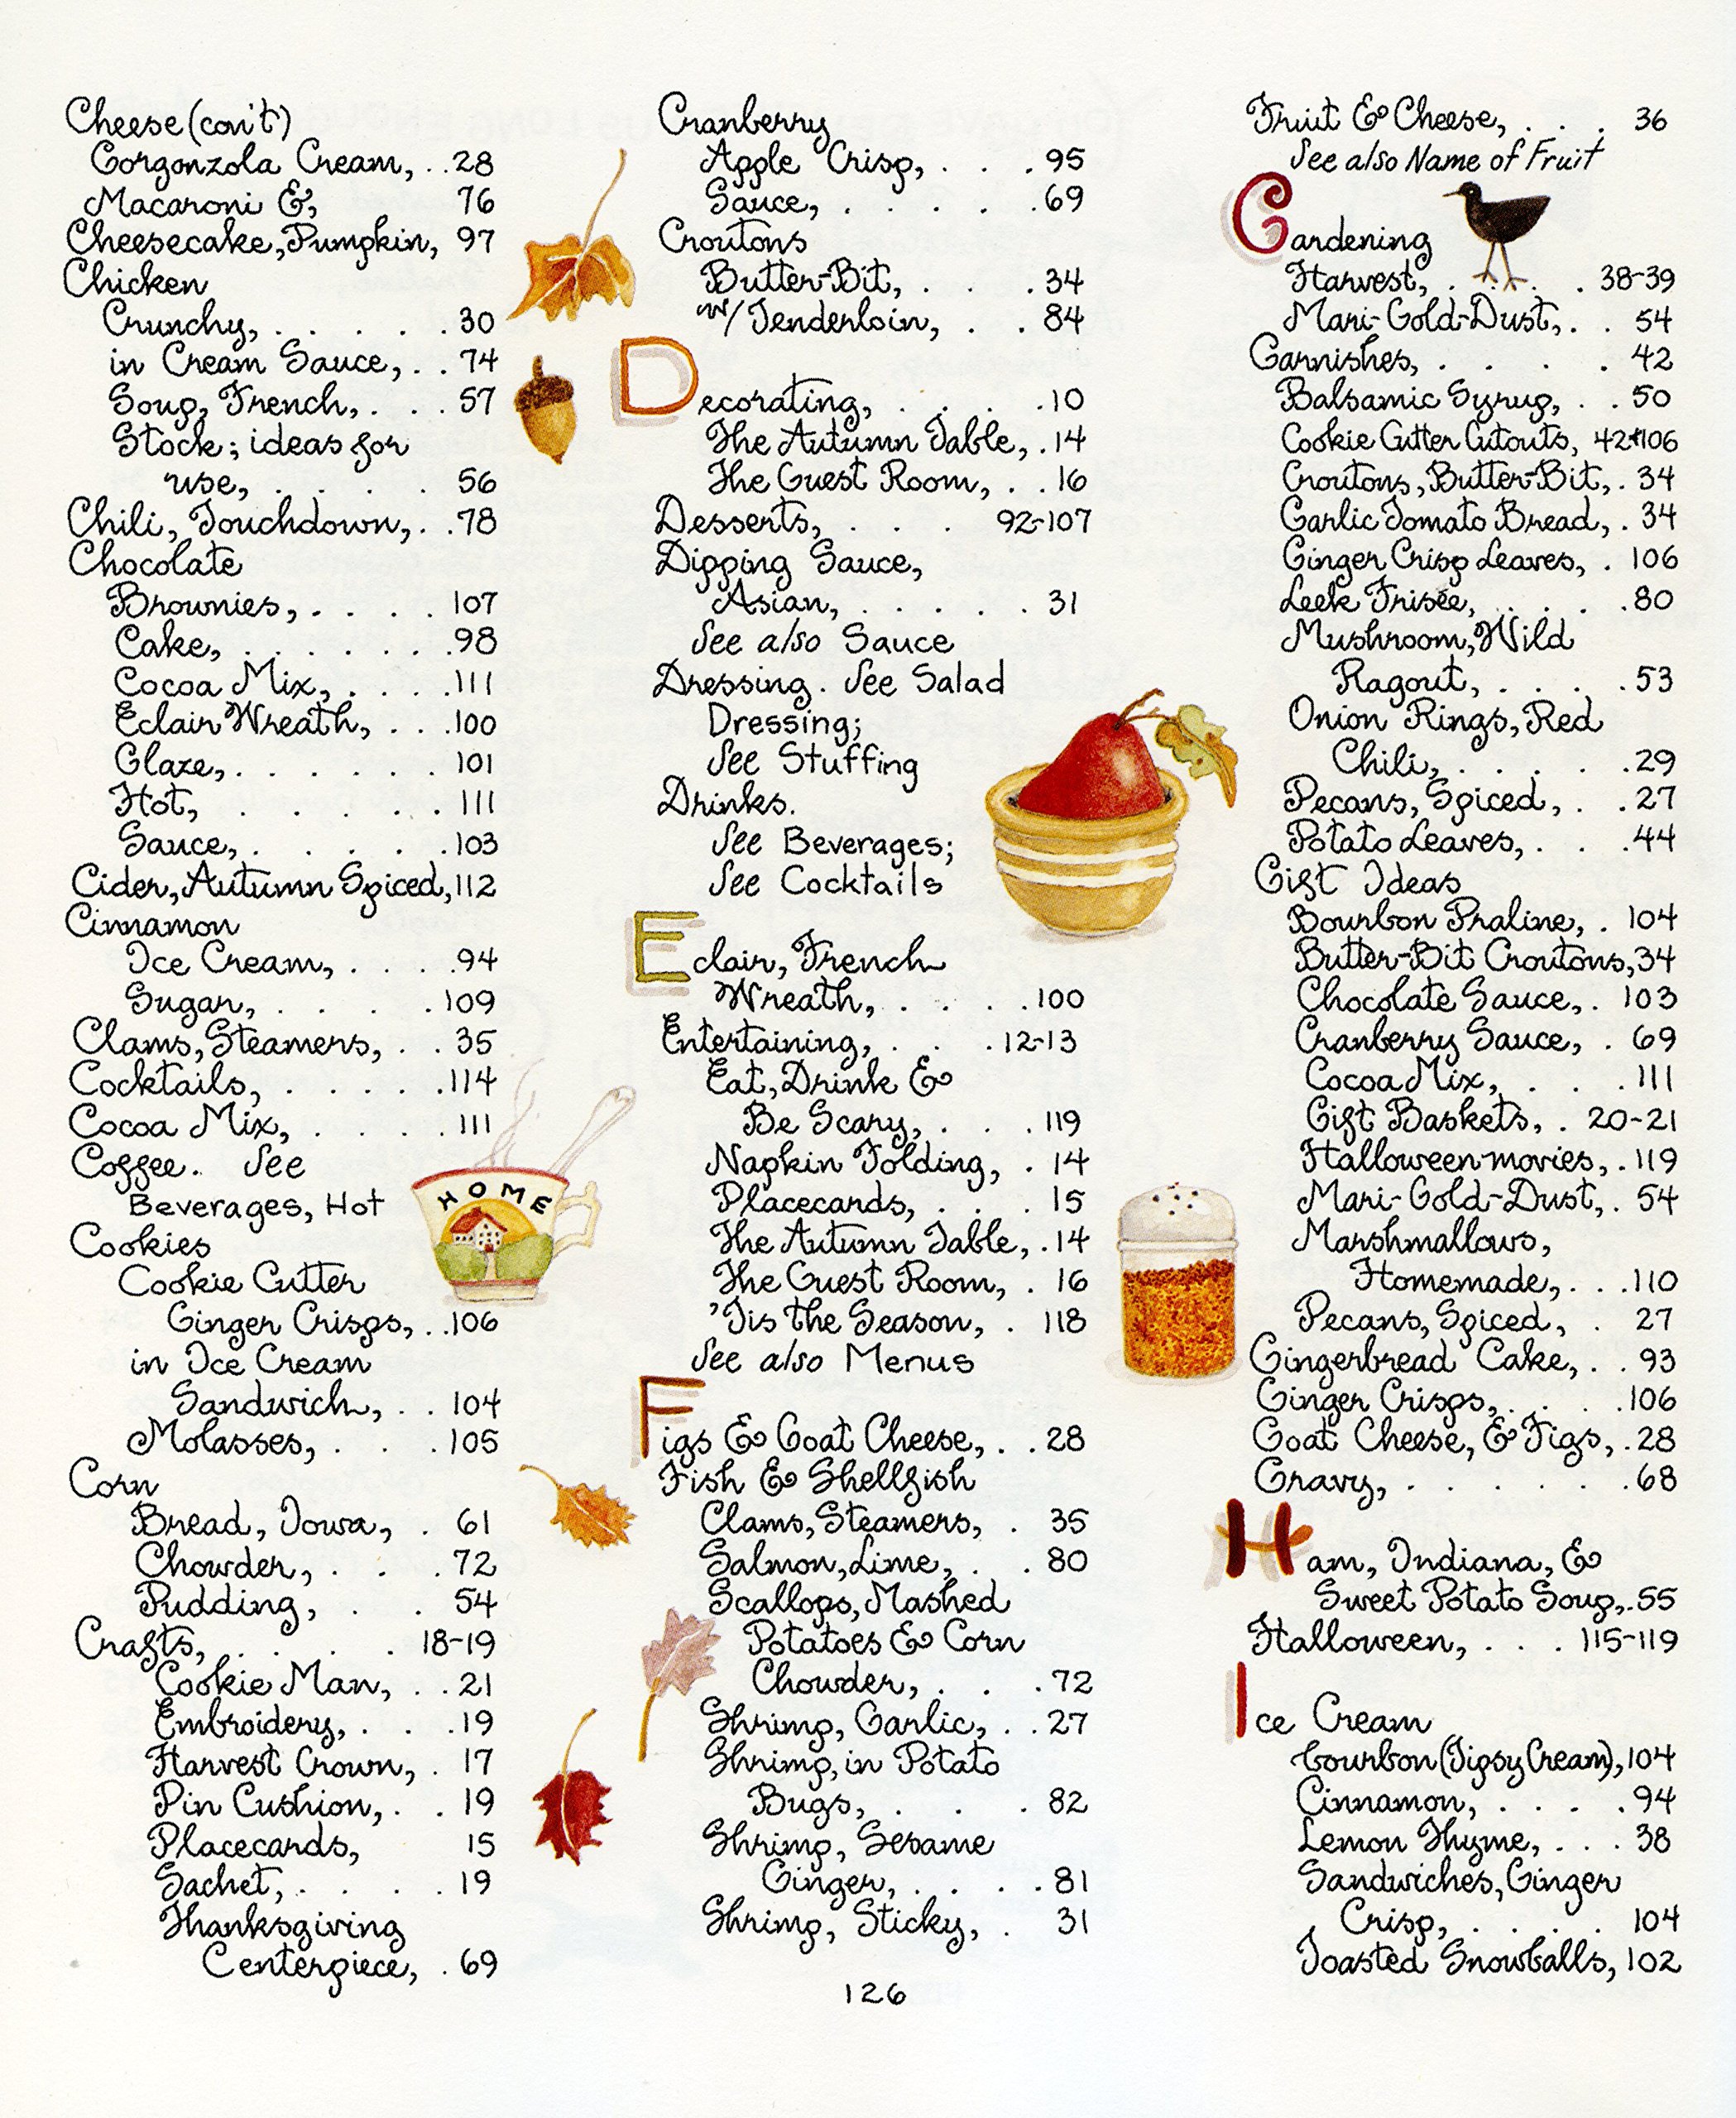 Cheese (con't)
Gorgonzola Cream, . . 28
Macaroni &, 76
Cheesecake, Pumpkin, 97
Chicken
Crunchy, . . . . . 30
in Cream Sauce, . . 74
Soup, French, . . . 57
Stock; ideas for
use, . . . . 56
Chili, Touchdown, . . 78
Chocolate
Brownies, . . . . 107
Cake, . . . . . . . 98
Cocoa Mix, . . . . 111
Eclair Wreath, . . . 100
Glaze, . . . . . . 101
Hot, . . . . . 111
Sauce, . . . . . 103
Cider, Autumn Spiced, 112
Cinnamon
Ice Cream, . . . . 94
Sugar, . . . . 109
Clams, Steamers, . . 35
Cocktails, . . . . . 114
Cocoa Mix, . . . . 111
Coffee. See
Beverages, Hot
Cookies
Cookie Cutter
Ginger Crisps, . . 106
in Ice Cream
Sandwich, . . 104
Molasses, . . . 105
Corn
Bread, Iowa, . 61
Chowder, . . . 72
Pudding, . . 54
Crafts, . . . . . 18-19
Cookie Man, . . 21
Embroidery, . . . 19
Harvest Crown, . 17
Pin Cushion, . . 19
Placecards, 15
Sachet, . . . . 19
Thanksgiving
Centerpiece, . 69
HOME
Cranberry
Apple Crisp, . . . 95
Sauce, . . . . . 69
Croutons
Butter-Bit, . . . 34
w/Tenderloin, . . 84
Decorating, . . . . 10
The Autumn Table, . 14
The Guest Room, . . 16
Desserts, . . . 92-107
Dipping Sauce,
Asian, . . . . . 31
See also Sauce
Dressing. See Salad
Dressing;
See Stuffing
Drinks.
See Beverages;
See Cocktails
Eclair, French
Wreath, . . . . 100
Entertaining, . . . 12-13
Eat, Drink &
Be Scary, . . . 119
Napkin Folding, . 14
Placecards, . . . 15
The Autumn Table, . 14
The Guest Room, . 16
'Tis the Season, . 118
See also Menus
Figs & Goat Cheese, . . 28
Fish & Shellfish
Clams, Steamers, . 35
Salmon, Lime, . . 80
Scallops, Mashed
Potatoes & Corn
Chowder, . . . 72
Shrimp, Garlic, . . 27
Shrimp, in Potato
Bugs, . . . 82
Shrimp, Sesame
Ginger, . . . . 81
Shrimp, Sticky, . 31
Fruit & Cheese, . . . 36
See also Name of Fruit
Gardening
Harvest, . . . . 38-39
Mari-Gold-Dust, . . 54
Garnishes, . . . . 42
Balsamic Syrup, . . 50
Cookie Cutter Cutouts, 42+106
Croutons, Butter-Bit, . 34
Garlic Tomato Bread, . 34
Ginger Crisp Leaves, . 106
Leek Frisée, . . . . 80
Mushroom, Wild
Ragout, . . . . 53
Onion Rings, Red
Chili, . . . . . 29
Pecans, Spiced, . . 27
Potato Leaves, . . . 44
Gift Ideas
Bourbon Praline, . 104
Butter-Bit Croutons, 34
Chocolate Sauce, . 103
Cranberry Sauce, . 69
Cocoa Mix, . . . 111
Gift Baskets, . 20-21
Halloween movies, . 119
Mari-Gold-Dust, . 54
Marshmallows,
Homemade, . . . 110
Pecans, Spiced, . 27
Gingerbread Cake, . . 93
Ginger Crisps, . . . . 106
Goat Cheese, & Figs, . 28
Gravy, . . . . . . 68
Ham, Indiana, &
Sweet Potato Soup, . 55
Halloween, . . . 115-119
Ice Cream
Bourbon (Tipsy Cream), 104
Cinnamon, . . . . 94
Lemon Thyme, . . . 38
Sandwiches, Ginger
Crisp, . . . . 104
Toasted Snowballs, 102
126